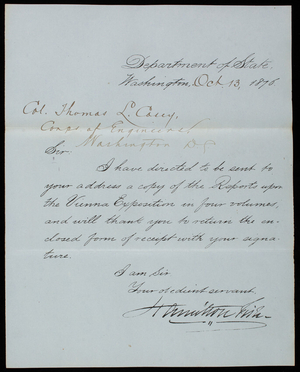 Department of State.
Washington, Oct. 13, 1876
Col. Thomas L. Casey,
Corps of Engineers
Washington D.C.
Sir
I have directed to be sent to
your address a copy of the Reports upon
the Vienna Exposition in four volumes,
and will thank you to return the en-
closed form of receipt with your signa-
ture.
I am Sir
Your obedient servant.
Hamilton Fish